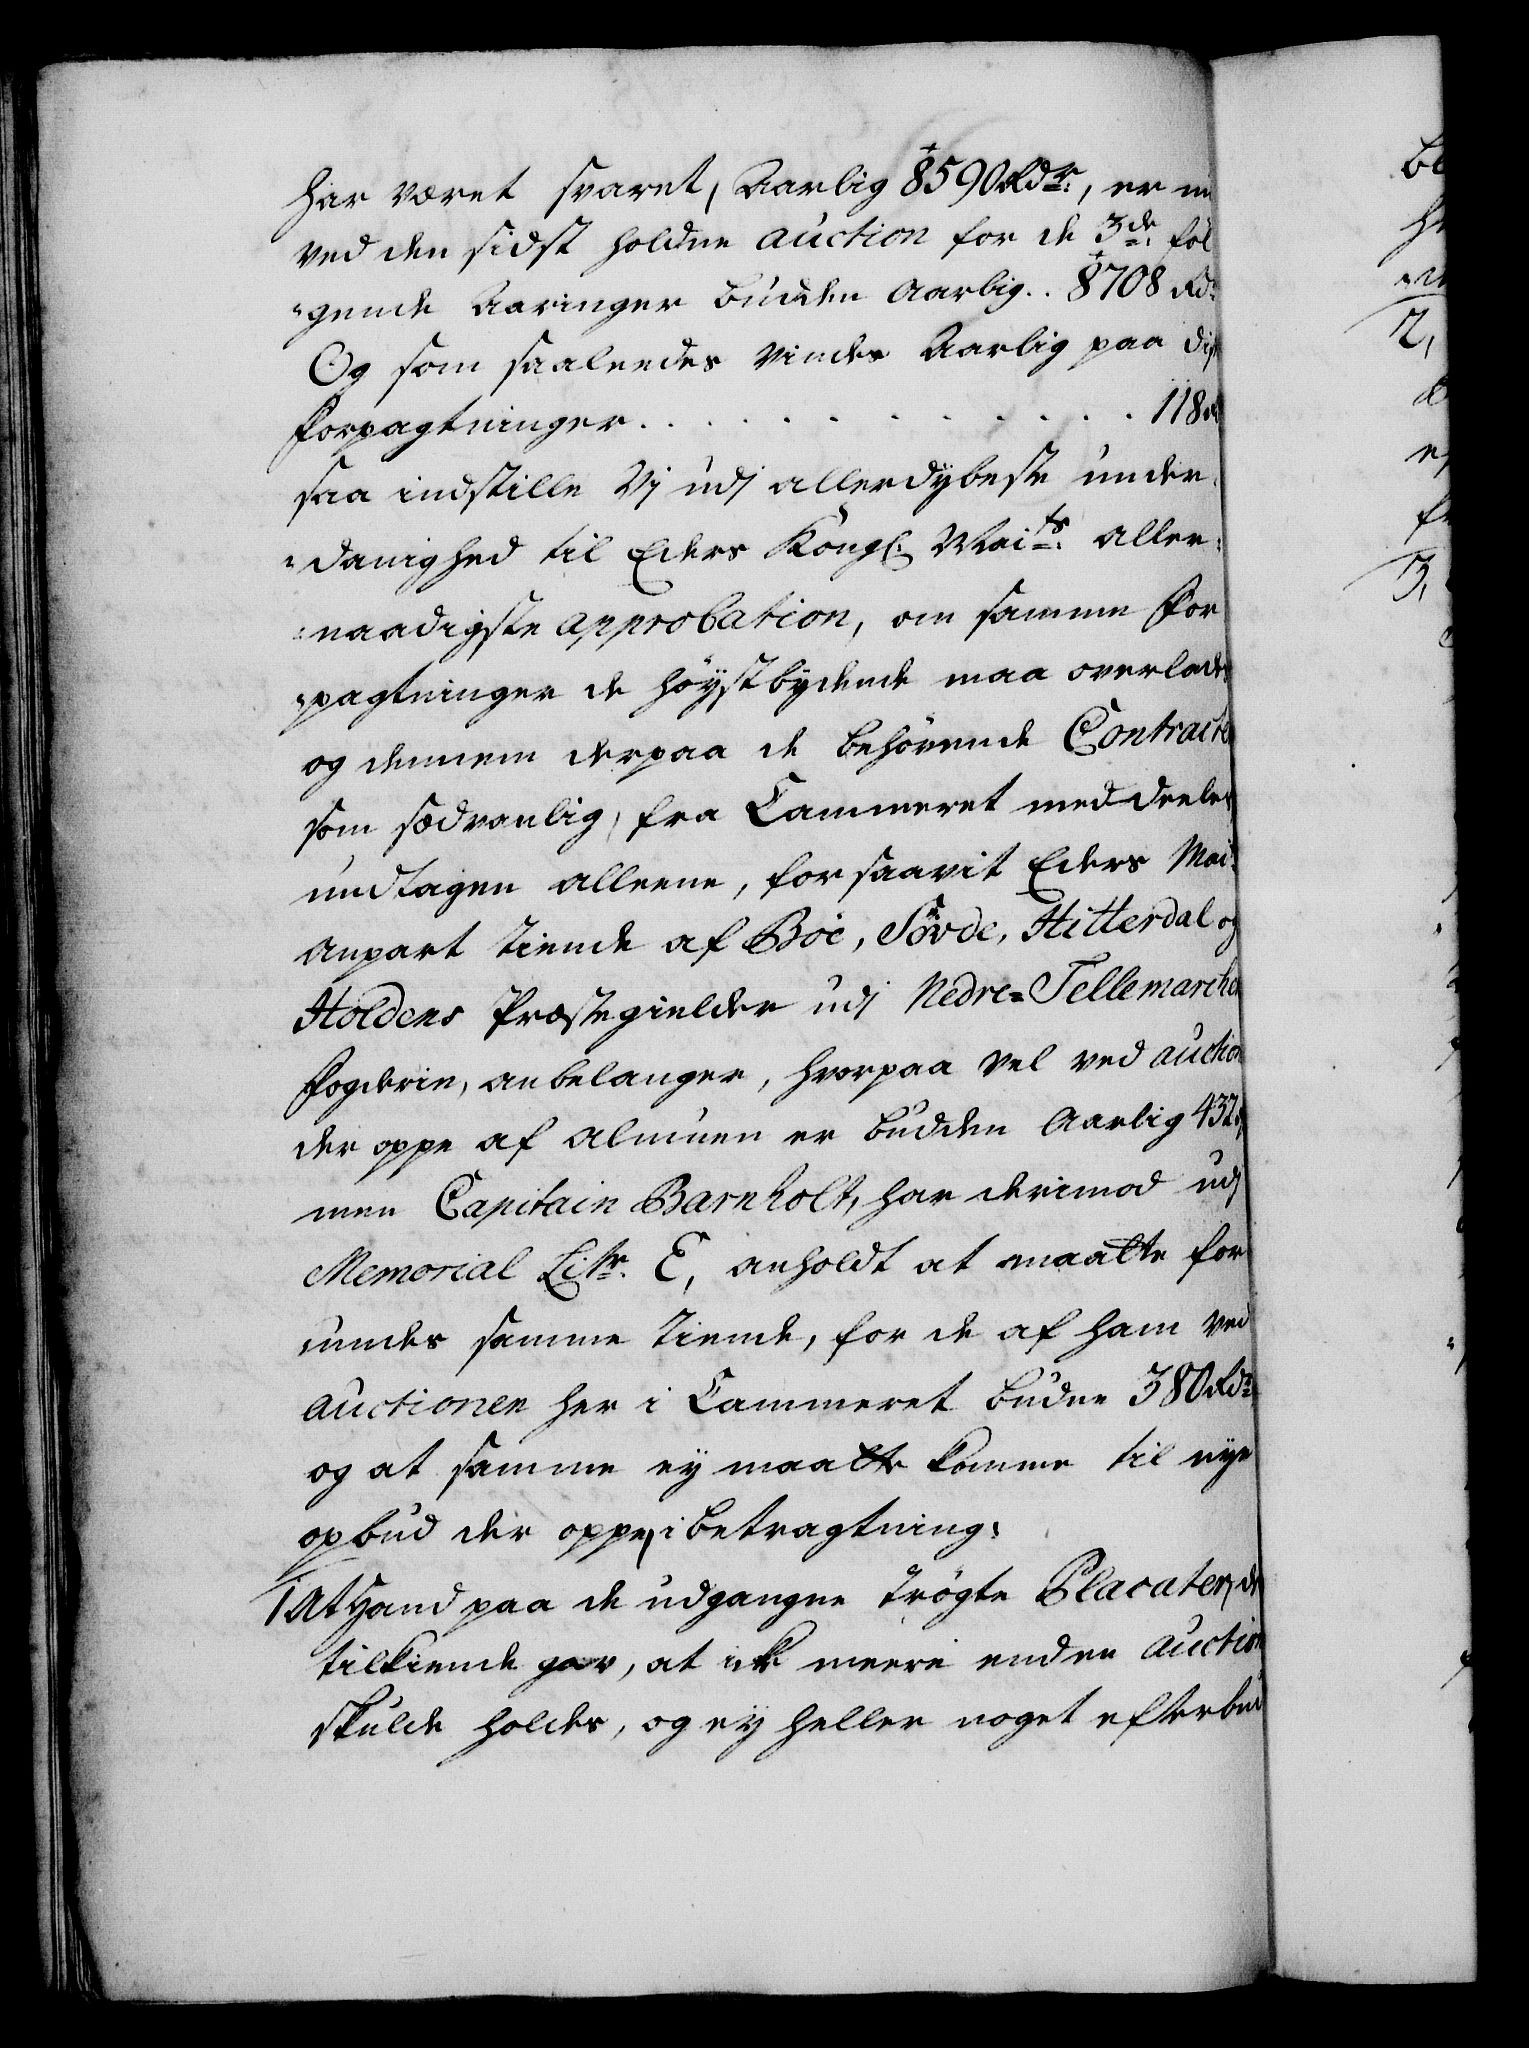 har været svaret, Aarlig 8590 Rdr:, er n
ved den sidst holdne auction for de 3de: føl
-gende Aaringer budden Aarlig.. 8708 Rd
Og som saaleedes vindes Aarlig paa diß
forpagtninger . . . . . . . . . . 118
saa indstille Vi udj allerdybeste under-
-danighed til Eders Kongl: Maits: aller-
-naadigste approbation, om samme for
-pagtninger de høystbydende maa overlade
og dennem derpaa de behørende Contracte
som sædvanlig, fra Cammeret meddeeles
undtagen alleene, forsaavit Eders Mai:
anpart tiende af Bøe, Søvde, Hitterdal og
Holdens Præstegielder udj Nedre-Tellemarchen
fogderie, anbelanger, hvorpaa vel ved auction
der oppe af almuen er budden Aarlig 432
men Capitain Barnholt, har derimod udj
Memorial Litr: E, anholdt at maatte for
undes samme tiende, for de af ham ved
auctionen her i Cammeret budne 380 Rdr
og at samme ey maatte komme til nye
opbud der oppe, i betragtning:
1 At Hand paa de udgangne trøgte Placater, de
tilkiende gav, at ick meere end en auction
skulde holdes, og ey heller noget efterbud